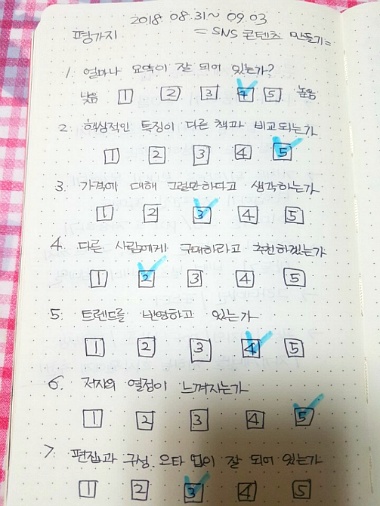 2018 08.31~ 09.03
평가지 = SNS 콘텐츠 만들기=
1. 얼마나 요약이 잘 되어 있는가?
낮음 1 2 3 4 5 높음
2. 핵심적인 특징이 다른 책과 비교되는가
1 2 3 4 5
3. 가격에 대해 그럴만하다고 생각하는가
1 2 3 4 5
4. 다른 사람에게 구매하라고 추천하겠는가
1 2 3 4 5
5. 트렌드를 반영하고 있는가
1 2 3 4 5
6. 저자의 열정이 느껴지는가
1 2 3 4 5
7. 편집과 구성, 오타 없이 잘 되어 있는가
1 2 3 4 5